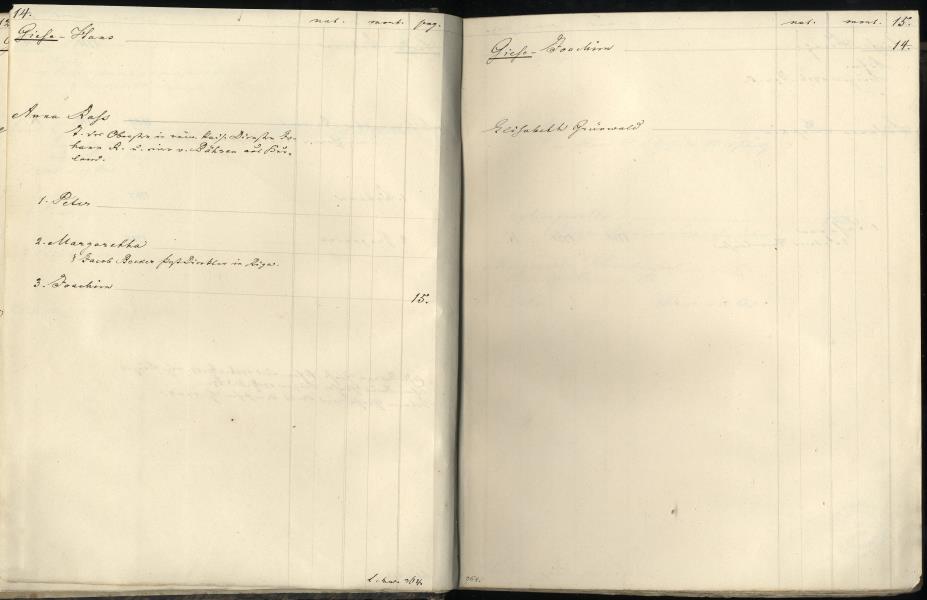 14.
nat. mort. pag.
Giese - Hans
Anna Rass
T. des Obersten in röm. kais. Diensten Jo-
hann R. u. einer v. aus Kur-
land.
1. Peter
2. Margaretha
Jacob Becker in Riga.
3. Joachim 15.
nat. mort. 15.
Giese - Joachim 14.
Elisabeth Grünwald